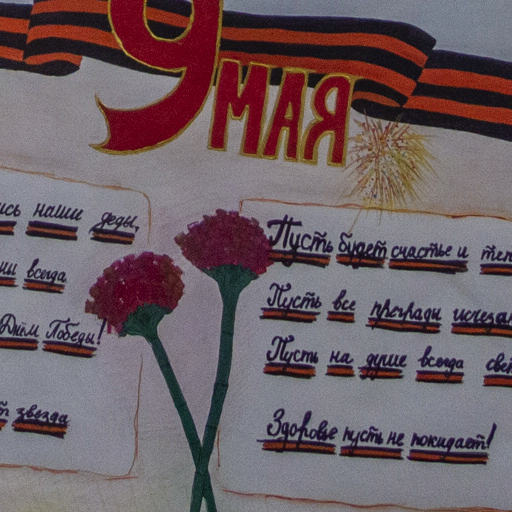 9 МАЯ
наши деды,
всегда
Днём Победы!
звезда
Пусть будет счастье и
Пусть все преграды
Пусть на душе всегда
Здоровье пусть не покидает!